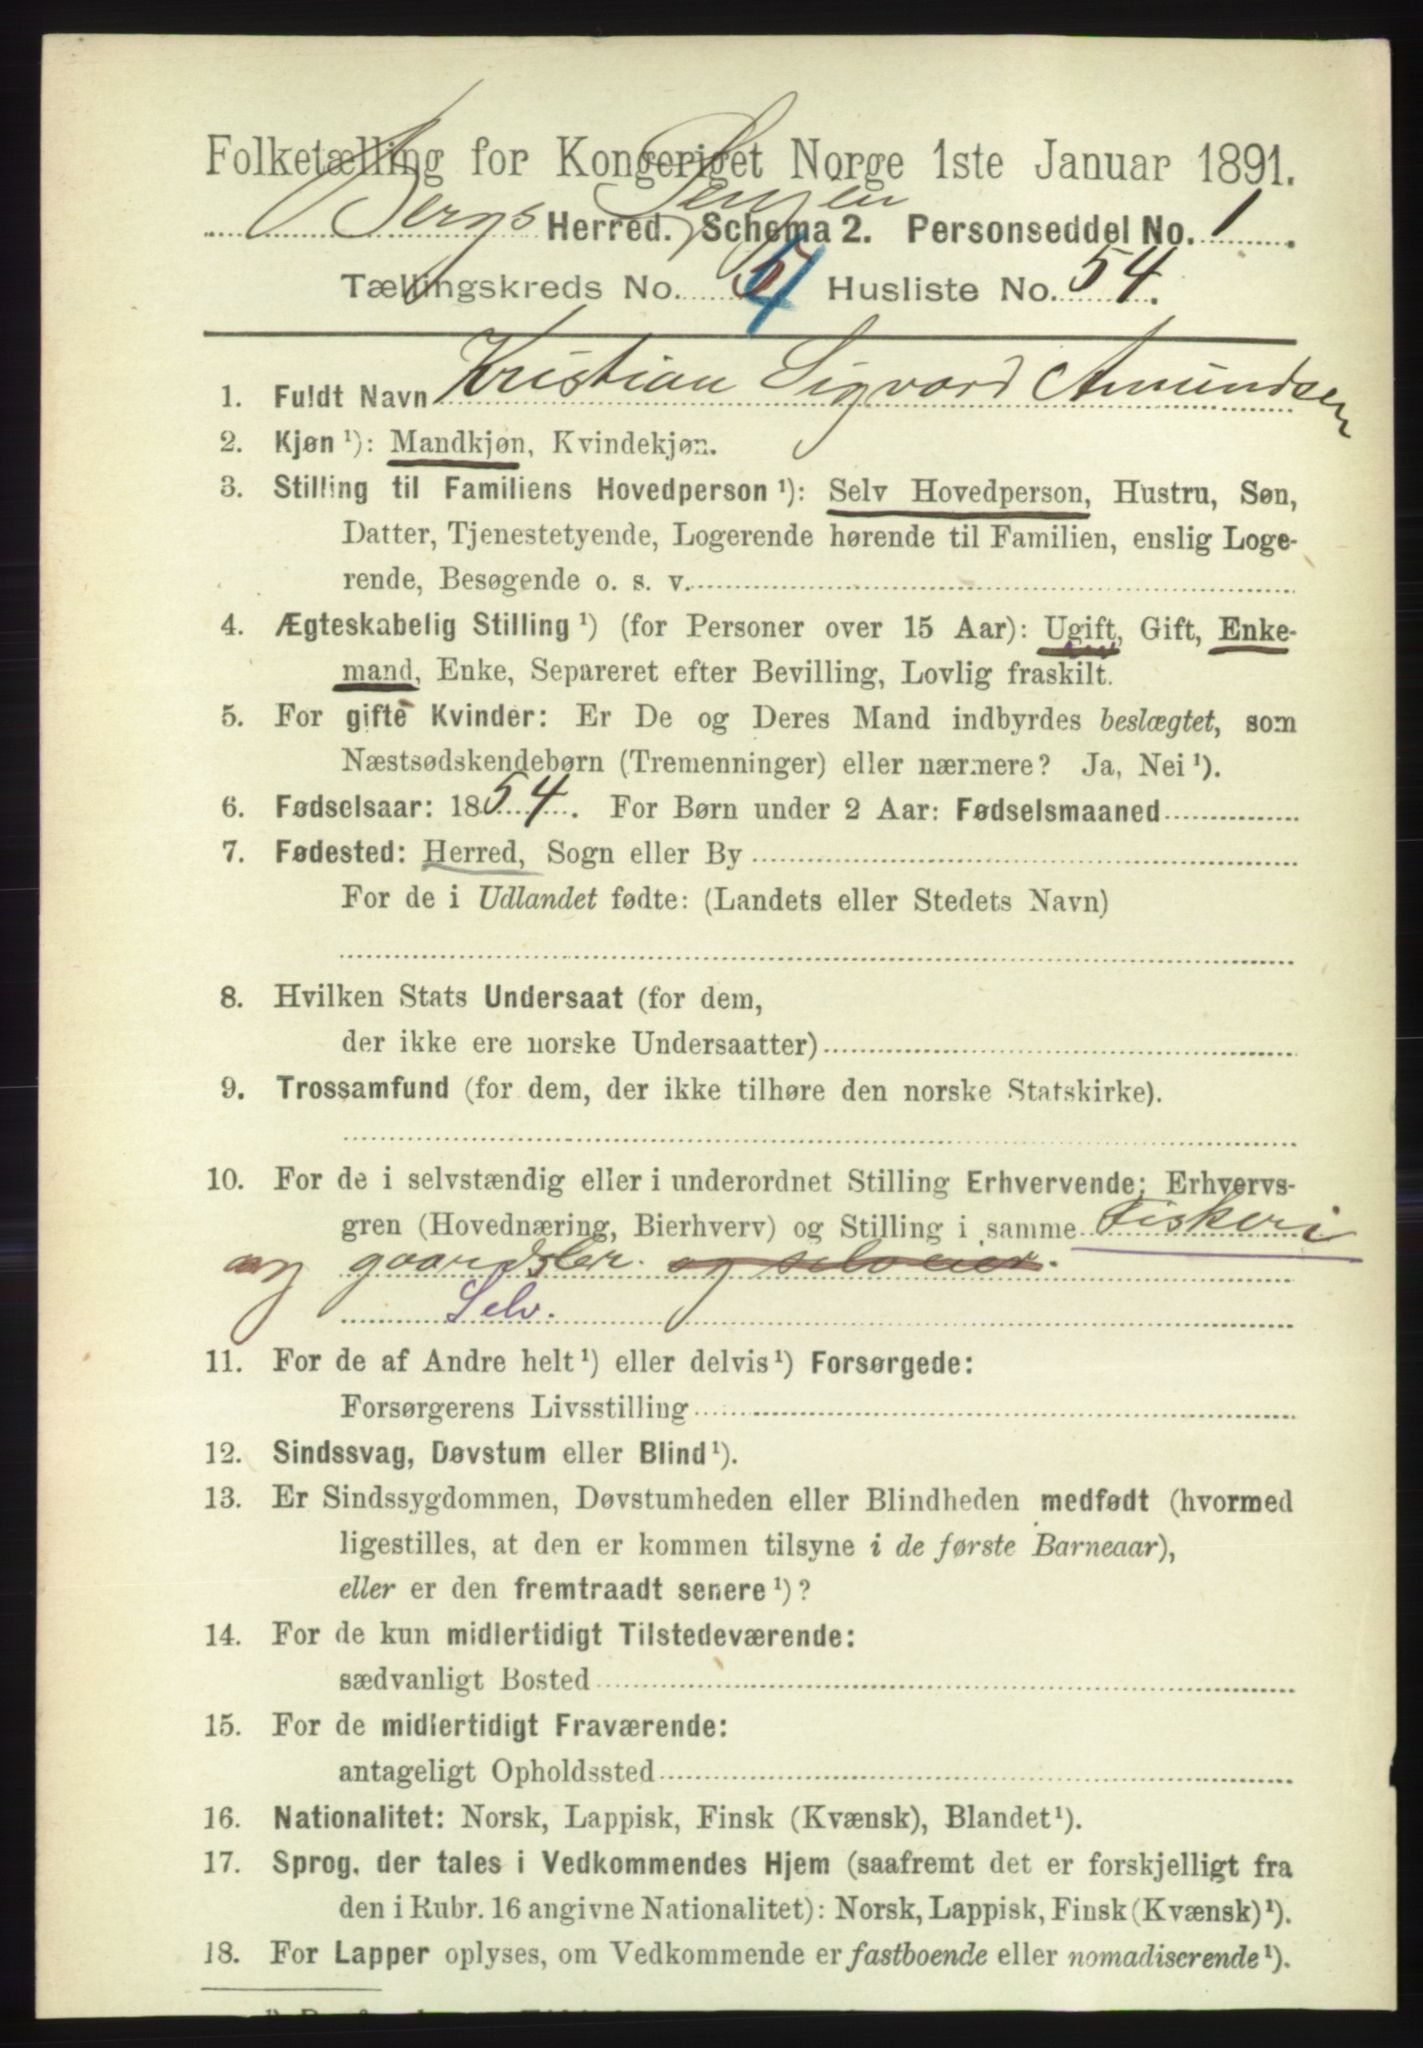 Folketælling for Kongeriget Norge 1ste Januar 1891.
Bergs Herred. Senjen Schema 2. Personseddel No. 1.
Tællingskreds No. 4 Husliste No. 54.
1. Fuldt Navn Kristian Sigvard Amundsen
2. Kjøn ¹): Mandkjøn, Kvindekjøn.
3. Stilling til Familiens Hovedperson ¹): Selv Hovedperson, Hustru, Søn,
Datter, Tjenestetyende, Logerende hørende til Familien, enslig Loge-
rende, Besøgende o. s. v.
4. Ægteskabelig Stilling ¹) (for Personer over 15 Aar): Ugift, Gift, Enke-
mand, Enke, Separeret efter Bevilling, Lovlig fraskilt.
5. For gifte Kvinder: Er De og Deres Mand indbyrdes beslægtet, som
Næstsødskendebørn (Tremenninger) eller nærmere? Ja, Nei ¹).
6. Fødselsaar: 1854. For Børn under 2 Aar: Fødselsmaaned
7. Fødested: Herred, Sogn eller By
For de i Udlandet fødte: (Landets eller Stedets Navn)
8. Hvilken Stats Undersaat (for dem,
der ikke ere norske Undersaatter)
9. Trossamfund (for dem, der ikke tilhøre den norske Statskirke).
10. For de i selvstændig eller i underordnet Stilling Erhvervende: Erhvervs-
gren (Hovednæring, Bierhverv) og Stilling i samme Fiskeri
og gaardsbr. og selveier.
Selv.
11. For de af Andre helt ¹) eller delvis ¹) Forsørgede:
Forsørgerens Livsstilling
12. Sindssvag, Døvstum eller Blind ¹).
13. Er Sindssygdommen, Døvstumheden eller Blindheden medfødt (hvormed
ligestilles, at den er kommen tilsyne i de første Barneaar),
eller er den fremtraadt senere ¹)?
14. For de kun midlertidigt Tilstedeværende:
sædvanligt Bosted
15. For de midlertidigt Fraværende:
antageligt Opholdssted
16. Nationalitet: Norsk, Lappisk, Finsk (Kvænsk), Blandet ¹).
17. Sprog, der tales i Vedkommendes Hjem (saafremt det er forskjelligt fra
den i Rubr. 16 angivne Nationalitet): Norsk, Lappisk, Finsk (Kvænsk) ¹).
18. For Lapper oplyses, om Vedkommende er fastboende eller nomadiserende ¹).